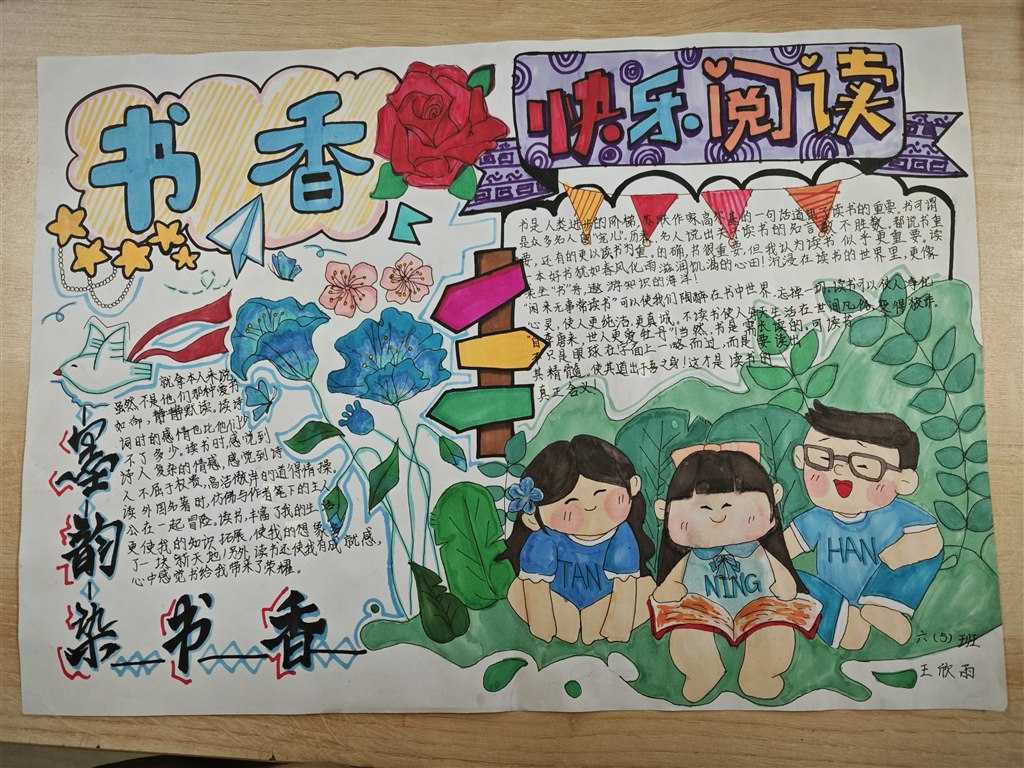 书香
快乐阅读
书是人类进步的阶梯，苏联作家高尔基的一句话道出了读书的重要，书可谓
是众多名人的"宠儿"，历来，名人说出关于读书的名言数不胜数，都说书重
要，还有的更以读书为重，的确，书很重要，但我认为读书似乎更重要，读
一本好书犹如春风化雨滋润饥渴的心田！沉浸在读书的世界里，更像
乘坐"书"舟，遨游知识的海洋！
闲来无事常读书"可以使我们陶醉在书中世界，忘掉一切，读书可以使人净化
心灵，使人更纯洁，更真诚，不读书使人
自唐来，世人更爱牡丹"当然，书是常长读的，可读书
不只是眼球在字面上一略而过，而是要读出
其精髓，使其道出于吾之身！这才是读书的
真正含义！
就拿本人来说，
虽然，不是他们那种爱书
如命，静静默读，读诗
词时的感情也比他们少
不了多少，读书时，感觉到
诗人复杂的情感，感觉到诗
人不屈于权贵，高洁傲岸的道得情操，
读外国名著时，仿佛与作者笔下的主人
公在一起冒险，读书，丰富了我的生活，
更使我的知识拓展，使我的想象多
了一块新天地！另外，读书还使我有成就感，
心中感觉书给我带来了荣耀。
墨韵染书香
TAN
NING
HAN
六（5）班
王欣雨